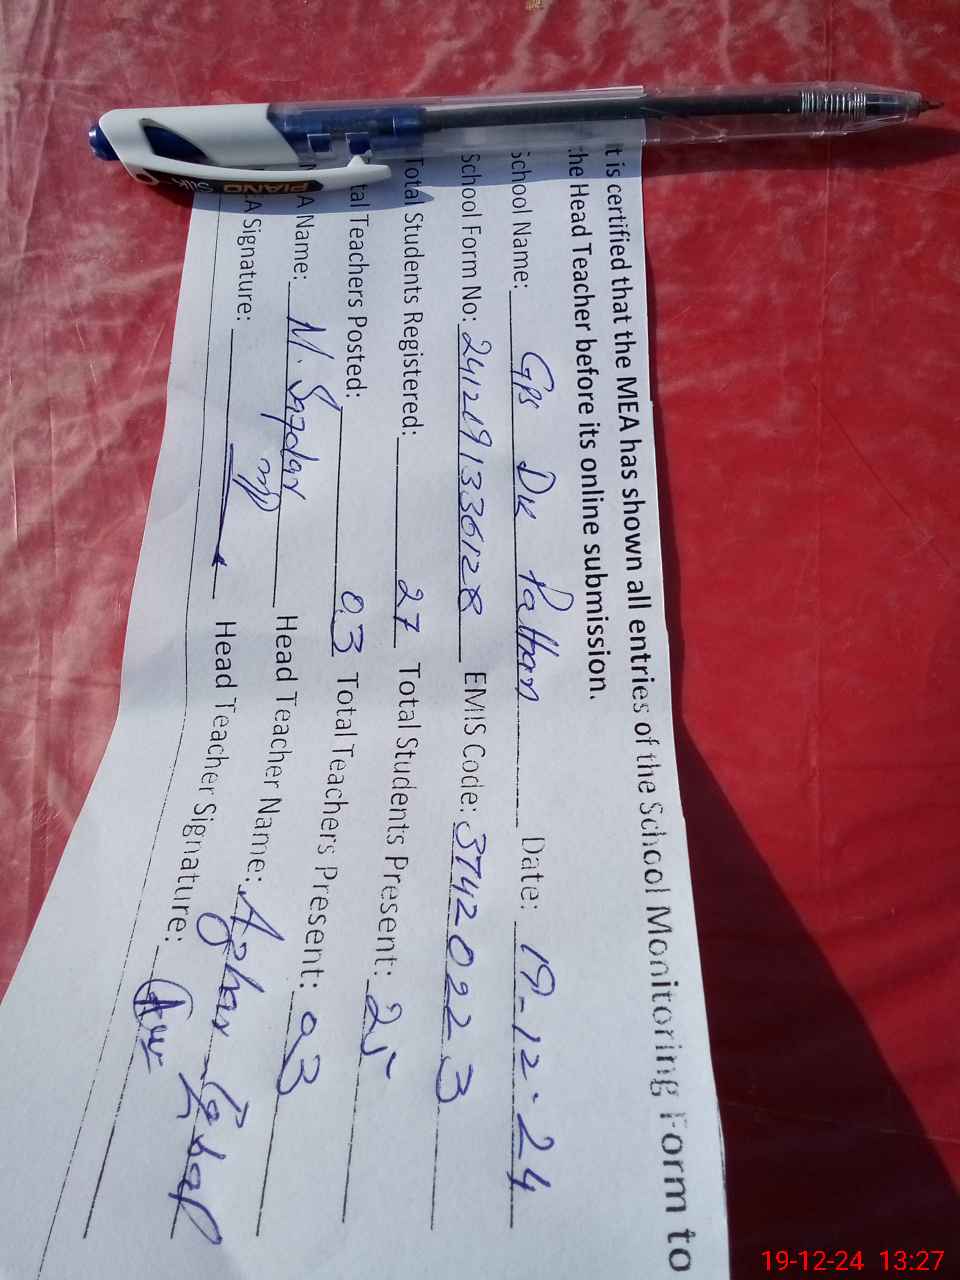 It is certified that the MEA has shown all entries of the School Monitoring Form to
the Head Teacher before its online submission.
School Name: GPS DK Pathan Date: 19-12-24
School Form No: 2412191336128 EMIS Code: 37420223
Total Students Registered: 27 Total Students Present: 25
tal Teachers Posted: 03 Total Teachers Present: 03
A Name: M. Head Teacher Name:
A Signature: Head Teacher Signature:
PIANO
19-12-24 13:27